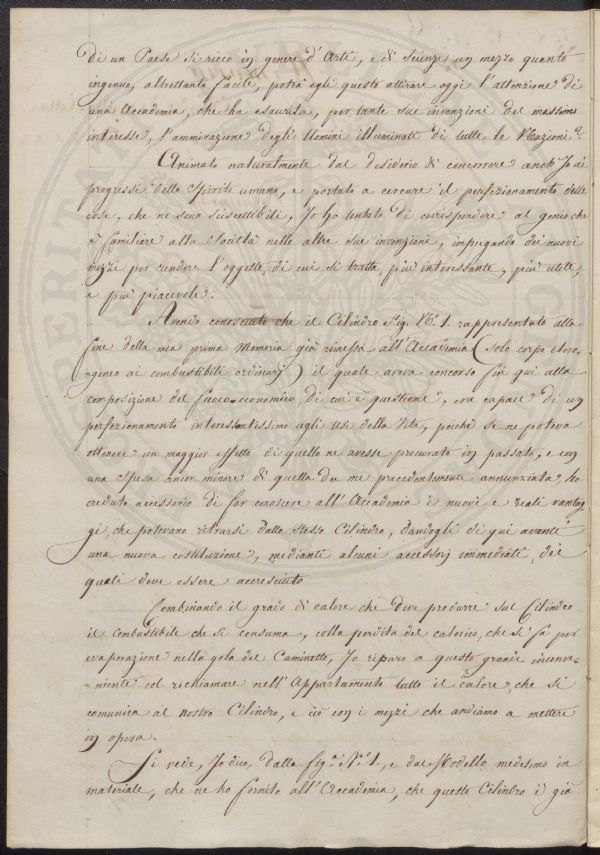 di un Paese sì ricco in genere d'Arti, e di Scienze un mezzo quanto
ingenuo, altrettanto facile, potrà egli questo attirare oggi l'attenzione di
una Accademia, che ha esaurita, per tante sue invenzioni del massimo
interesse, l'ammirazione degli Uomini illuminati di tutte le Nazioni?
Animato naturalmente dal desiderio di concorrere anch'Io ai
progressi dello Spirito umano, e portato a cercare il perfezionamento delle
cose, che ne sono suscettibili, Io ho tentato di corrispondere al genio che
è familiare alla Società nelle altre sue invenzioni, impiegando dei nuovi
mezzi per rendere l'oggetto, di cui si tratta, più interessante, più utile,
e più piacevole.
Avendo conosciuto che il Cilindro Fig. N.º 1. rappresentato alla
fine della mia prima Memoria già rimessa all'Accademia (solo corpo etero-
=geneo ai combustibili ordinarj) il quale aveva concorso fin qui alla
composizione del fuoco-economico di cui è questione, era capace di un
perfezionamento interessantissimo agli usi della Vita, poiché se ne poteva
ottenere un maggior effetto di quello ne avesse procurato in passato, e con
una spesa ancor minore di quella da me precedentemente annunziata, ho
creduto necessario di far conoscere all'Accademia i nuovi e reali vantag
gi, che potevano ritrarsi dallo stesso Cilindro, dandogli di qui avanti
una nuova costituzione, mediante alcuni accessorj immediati, dei
quali deve essere accresciuto
Combinando il grado di calore che deve produrre sul Cilindro
il combustibile che si consuma, colla perdita del calorico, che si fa per
evaporazione nella gola del Caminetto, Io riparo a questo grande inconve-
=niente col richiamare nell'Appartamento tutto il calore, che si
comunica al nostro Cilindro, e ciò con i mezzi che andiamo a mettere
in opera.
Si vede, Io dico, dalla fig.ª N.º 1., e dal Modello medesimo in
materiale, che ne ho fornito all'Accademia, che questo Cilindro è già